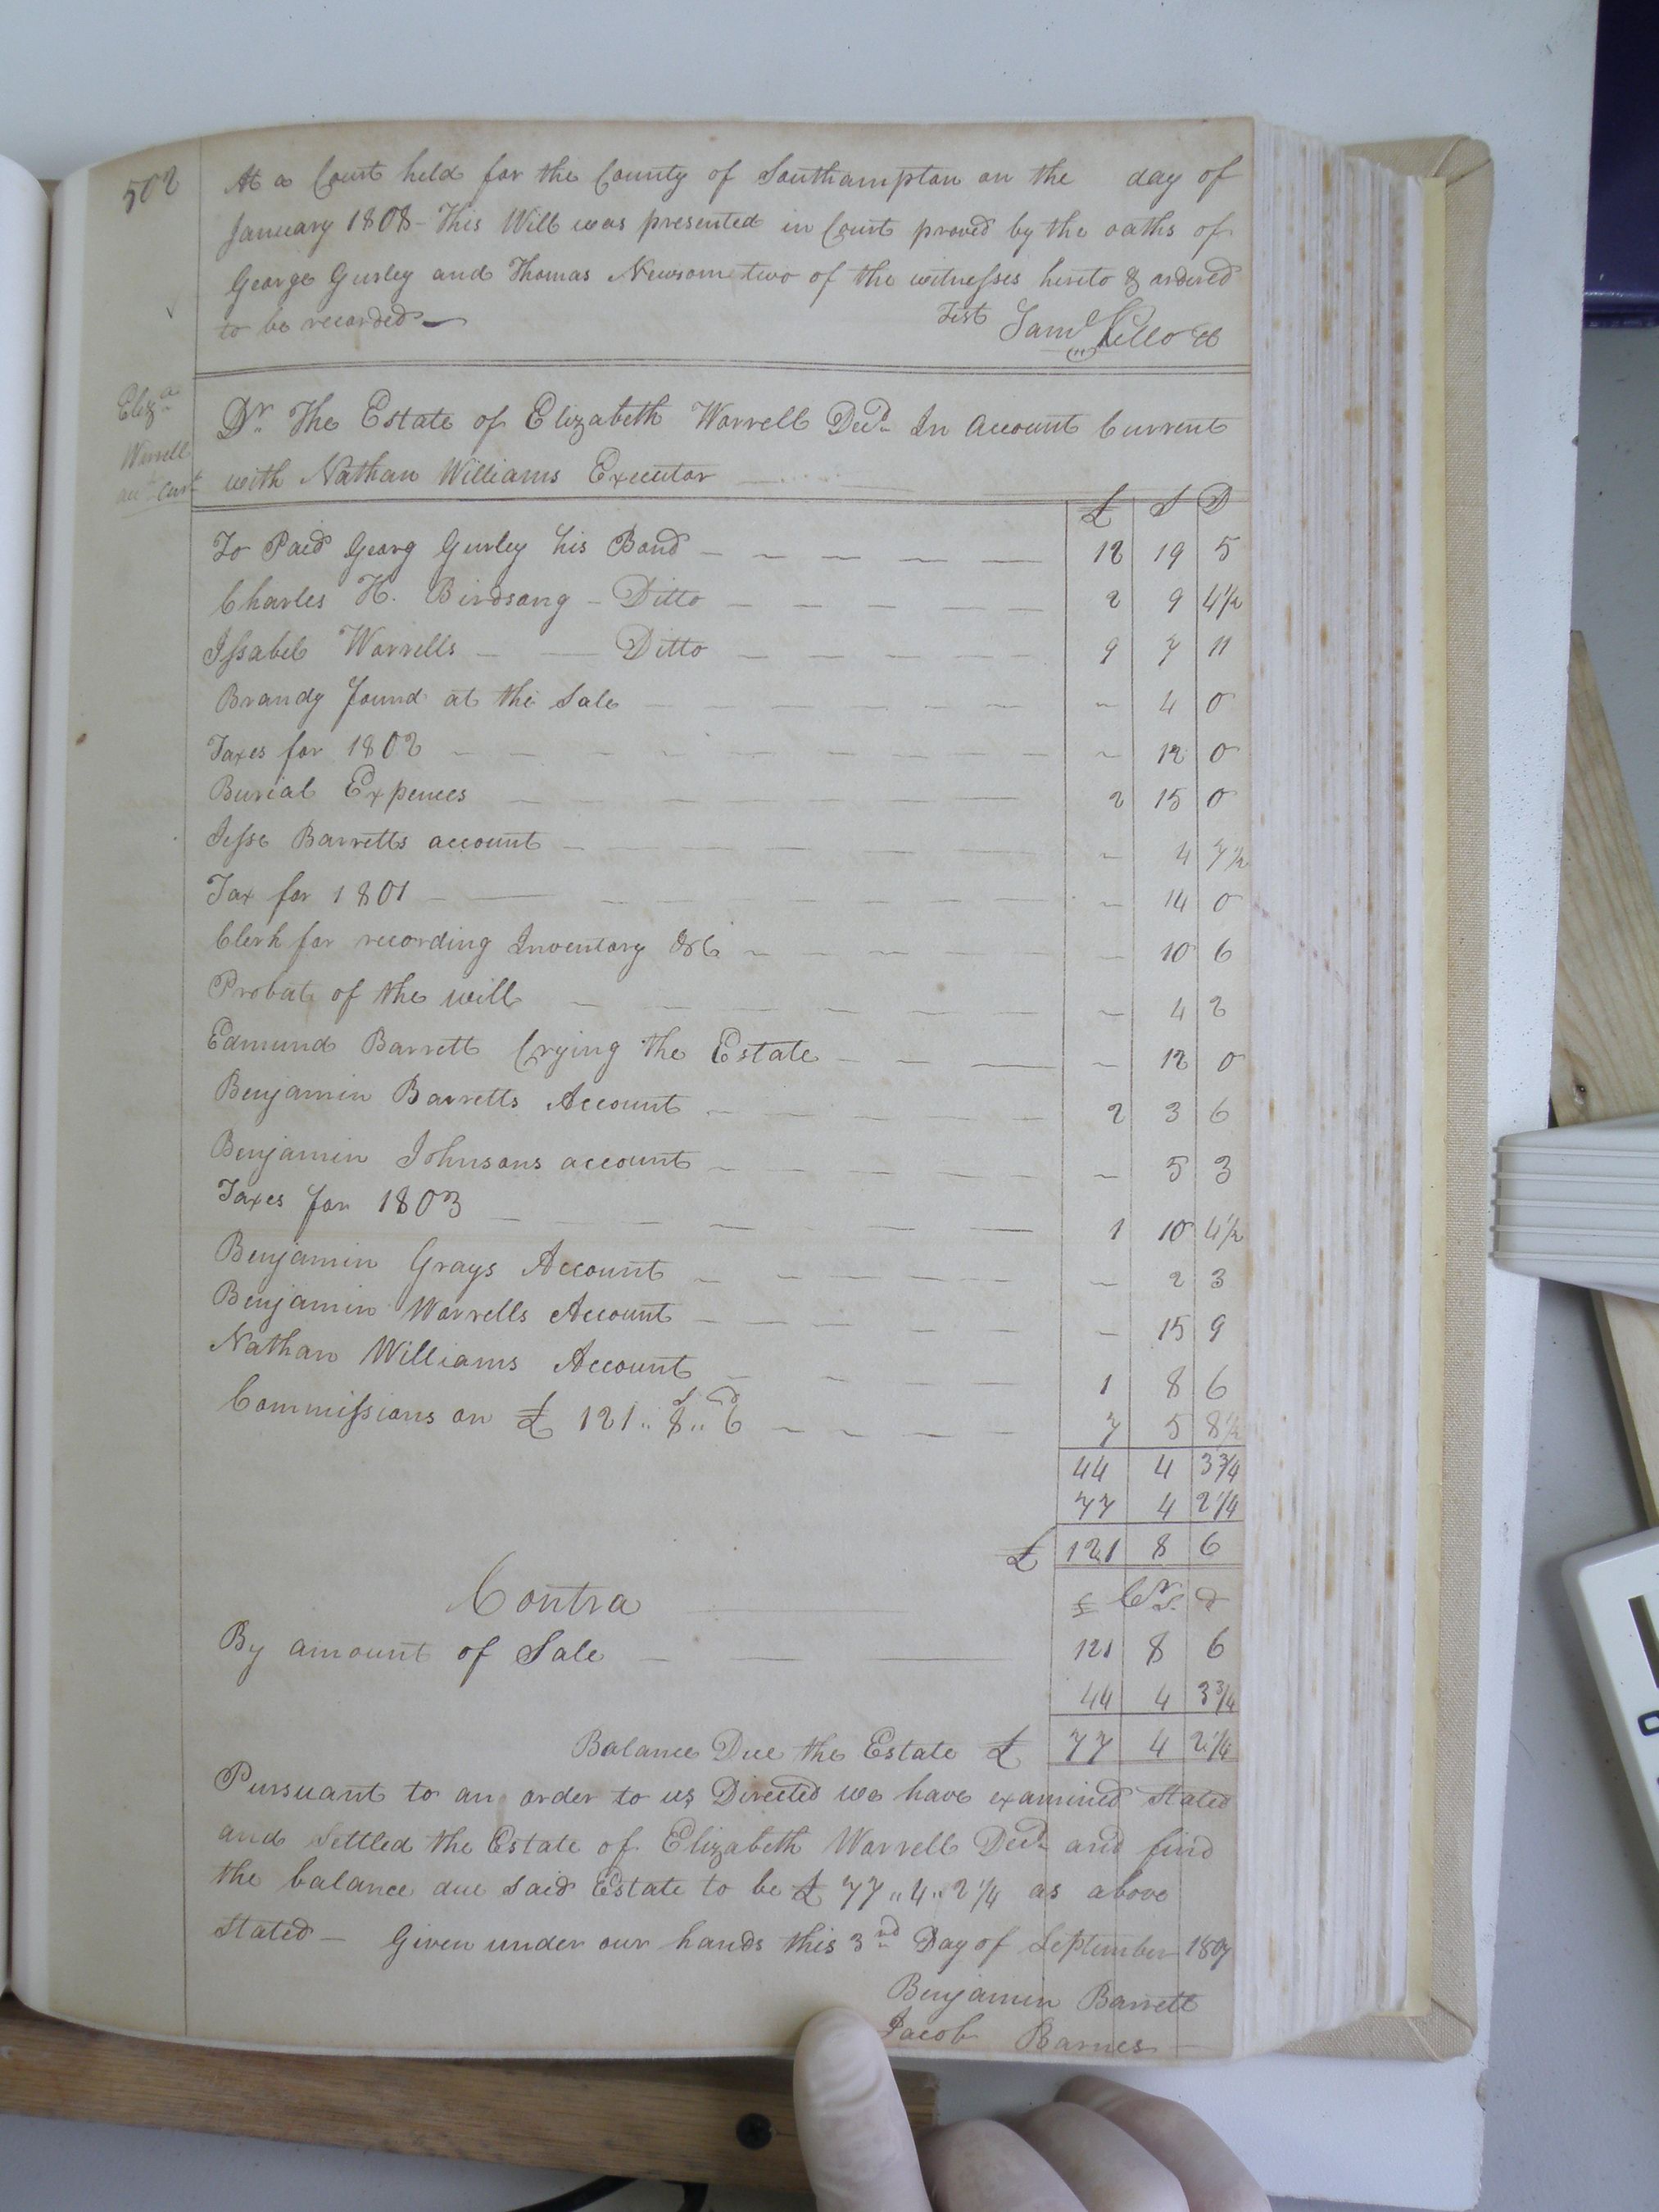 502
At a Court held for the County of Southampton on the day of
January 1808 - This Will was presented in Court proved by the oaths of
George Gurley and Thomas Newsom two of the witnesses hereto & ordered
to be recorded —
Test Saml Kello CC
Eliza
Worrell
acct Curt
Dr. The Estate of Elizabeth Worrell Decd. In Account Current
with Nathan Williams Executor
£ S D
To Paid Georg Gurley his Bond 12 19 5
Charles H. Birdsong - Ditto 2 9 4½
Issabel Worrells — Ditto 9 7 11
Brandy found at the Sale 4 0
Taxes for 1802 12 0
Burial Expences 2 15 0
Jesse Barretts account 4 7½
Tax for 1801 14 0
Clerk for recording Inventory &C 10 6
Probate of the will 4 2
Edmund Barrett Crying the Estate 12 0
Benjamin Barretts Account 2 3 6
Benjamin Johnsons account 5 3
Taxes for 1803 1 10 4½
Benjamin Grays Account 2 3
Benjamin Worrells Account 15 9
Nathan Williams Account 1 8 6
Commissions on £ 121.. 8.. 6 7 5 8½
44 4 3¾
77 4 2¼
£ 121 8 6
Contra £ Cr S. d
By amount of Sale 121 8 6
44 4 3¾
Balance Due the Estate £ 77 4 2¼
Pursuant to an order to us Directed we have examined Stated
and Settled the Estate of Elizabeth Worrell Decd. and find
the balance due said Estate to be £ 77..4..2¼ as above
Stated — Given under our hands this 3rd Day of September 1807
Benjamin Barrett
Jacob Barnes